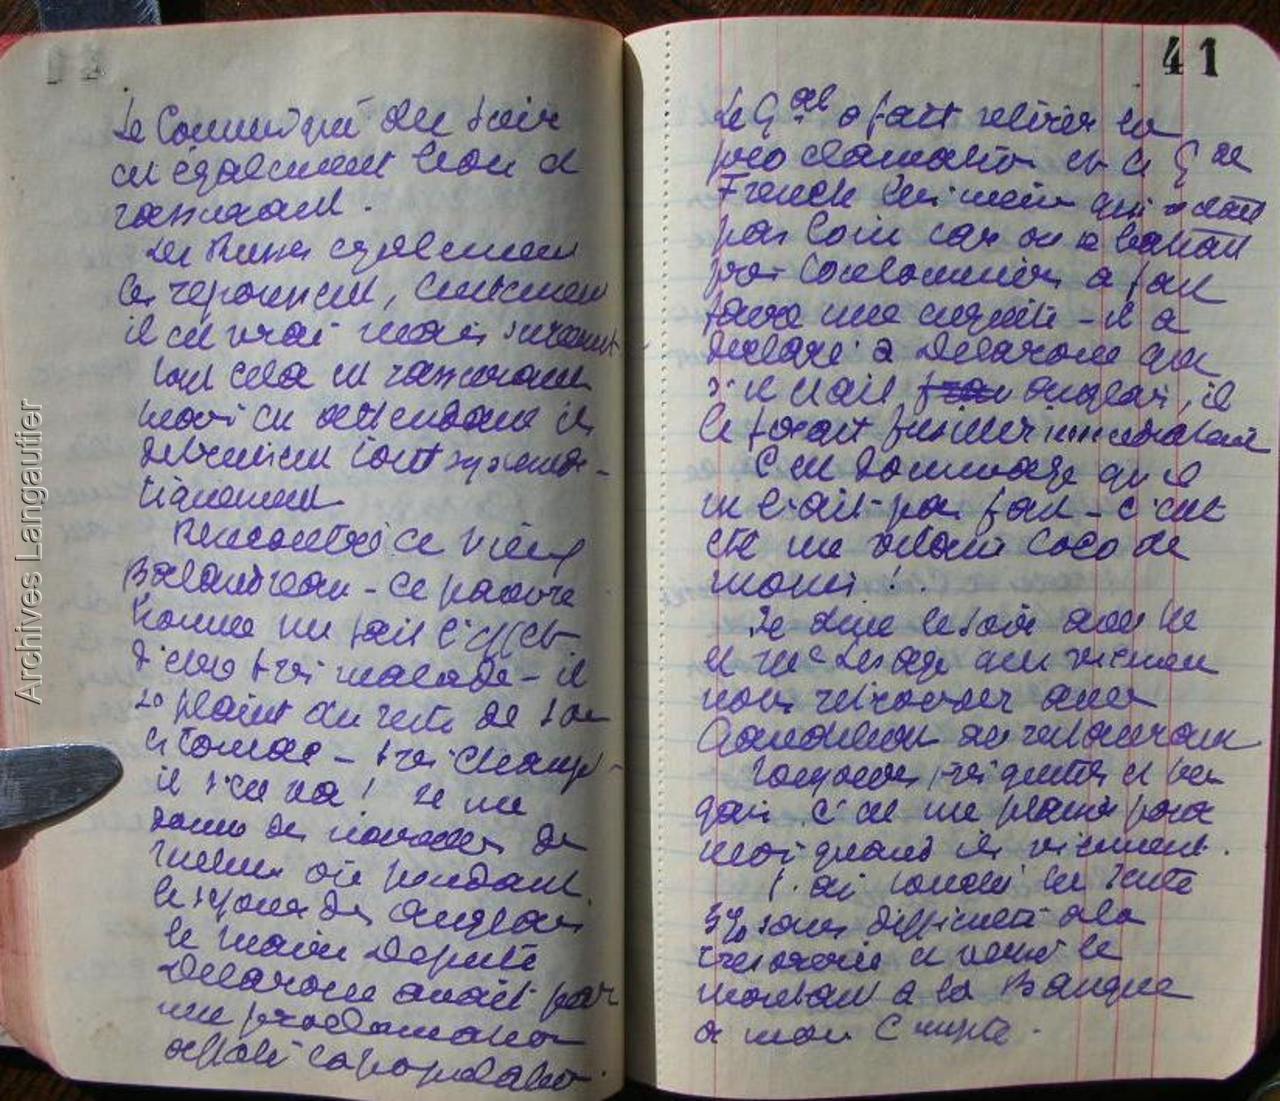 Le Communiqué du soir
est également bon et
rassurant.
Les Russes également
les repoussent, lentement
il est vrai mais surement
tout cela est rassurant
mais en attendant ils
détruisent tout systéma-
tiquement
Rencontré ce vieux
Balandreau - ce pauvre
homme me fait l'effet
d'être très malade - il
se plaint du reste de son
estomac - très changé -
il s'en va ! Il me
donne des nouvelles de
Melun où pendant
le séjour des Anglais
le maire Député
Delaroue avait par
une proclamation
affolé la population.
41
Le Gal a fait retirer la
proclamation et le Gal
French lui même qui n'était
pas loin car on se battait
près Coulommiers a fait
faire une enquête - il a
déclaré à Delaroue que
s'il était anglais, il
le ferait fusiller immédiatement
C'est dommage qu'il
ne l'ait pas fait - c'eut
été un vilain coco de
moins !.
Je dine le soir avec Mr
et Me Lesage qui viennent
nous retrouver avec
au restaurant
toujours très gentils et très
gais. C'est un plaisir pour
moi quand ils viennent.
J'ai touché la rente
3% sans difficulté à la
trésorerie et versé le
montant à la Banque
à mon Compte.
Archives Langautier